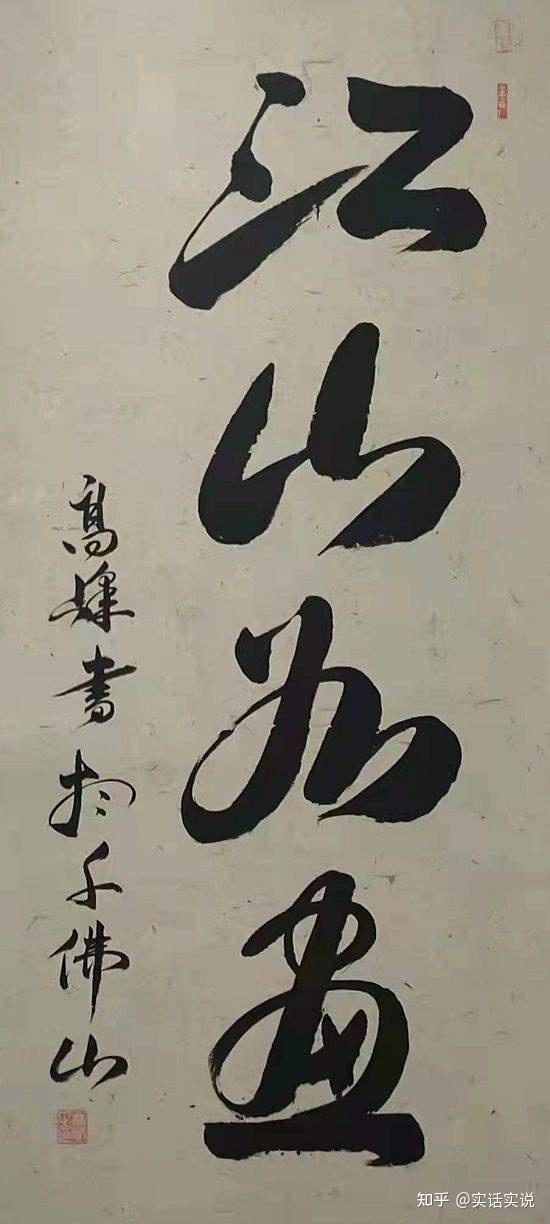 江山如画
高嫁書於千佛山
知乎 @实话实说